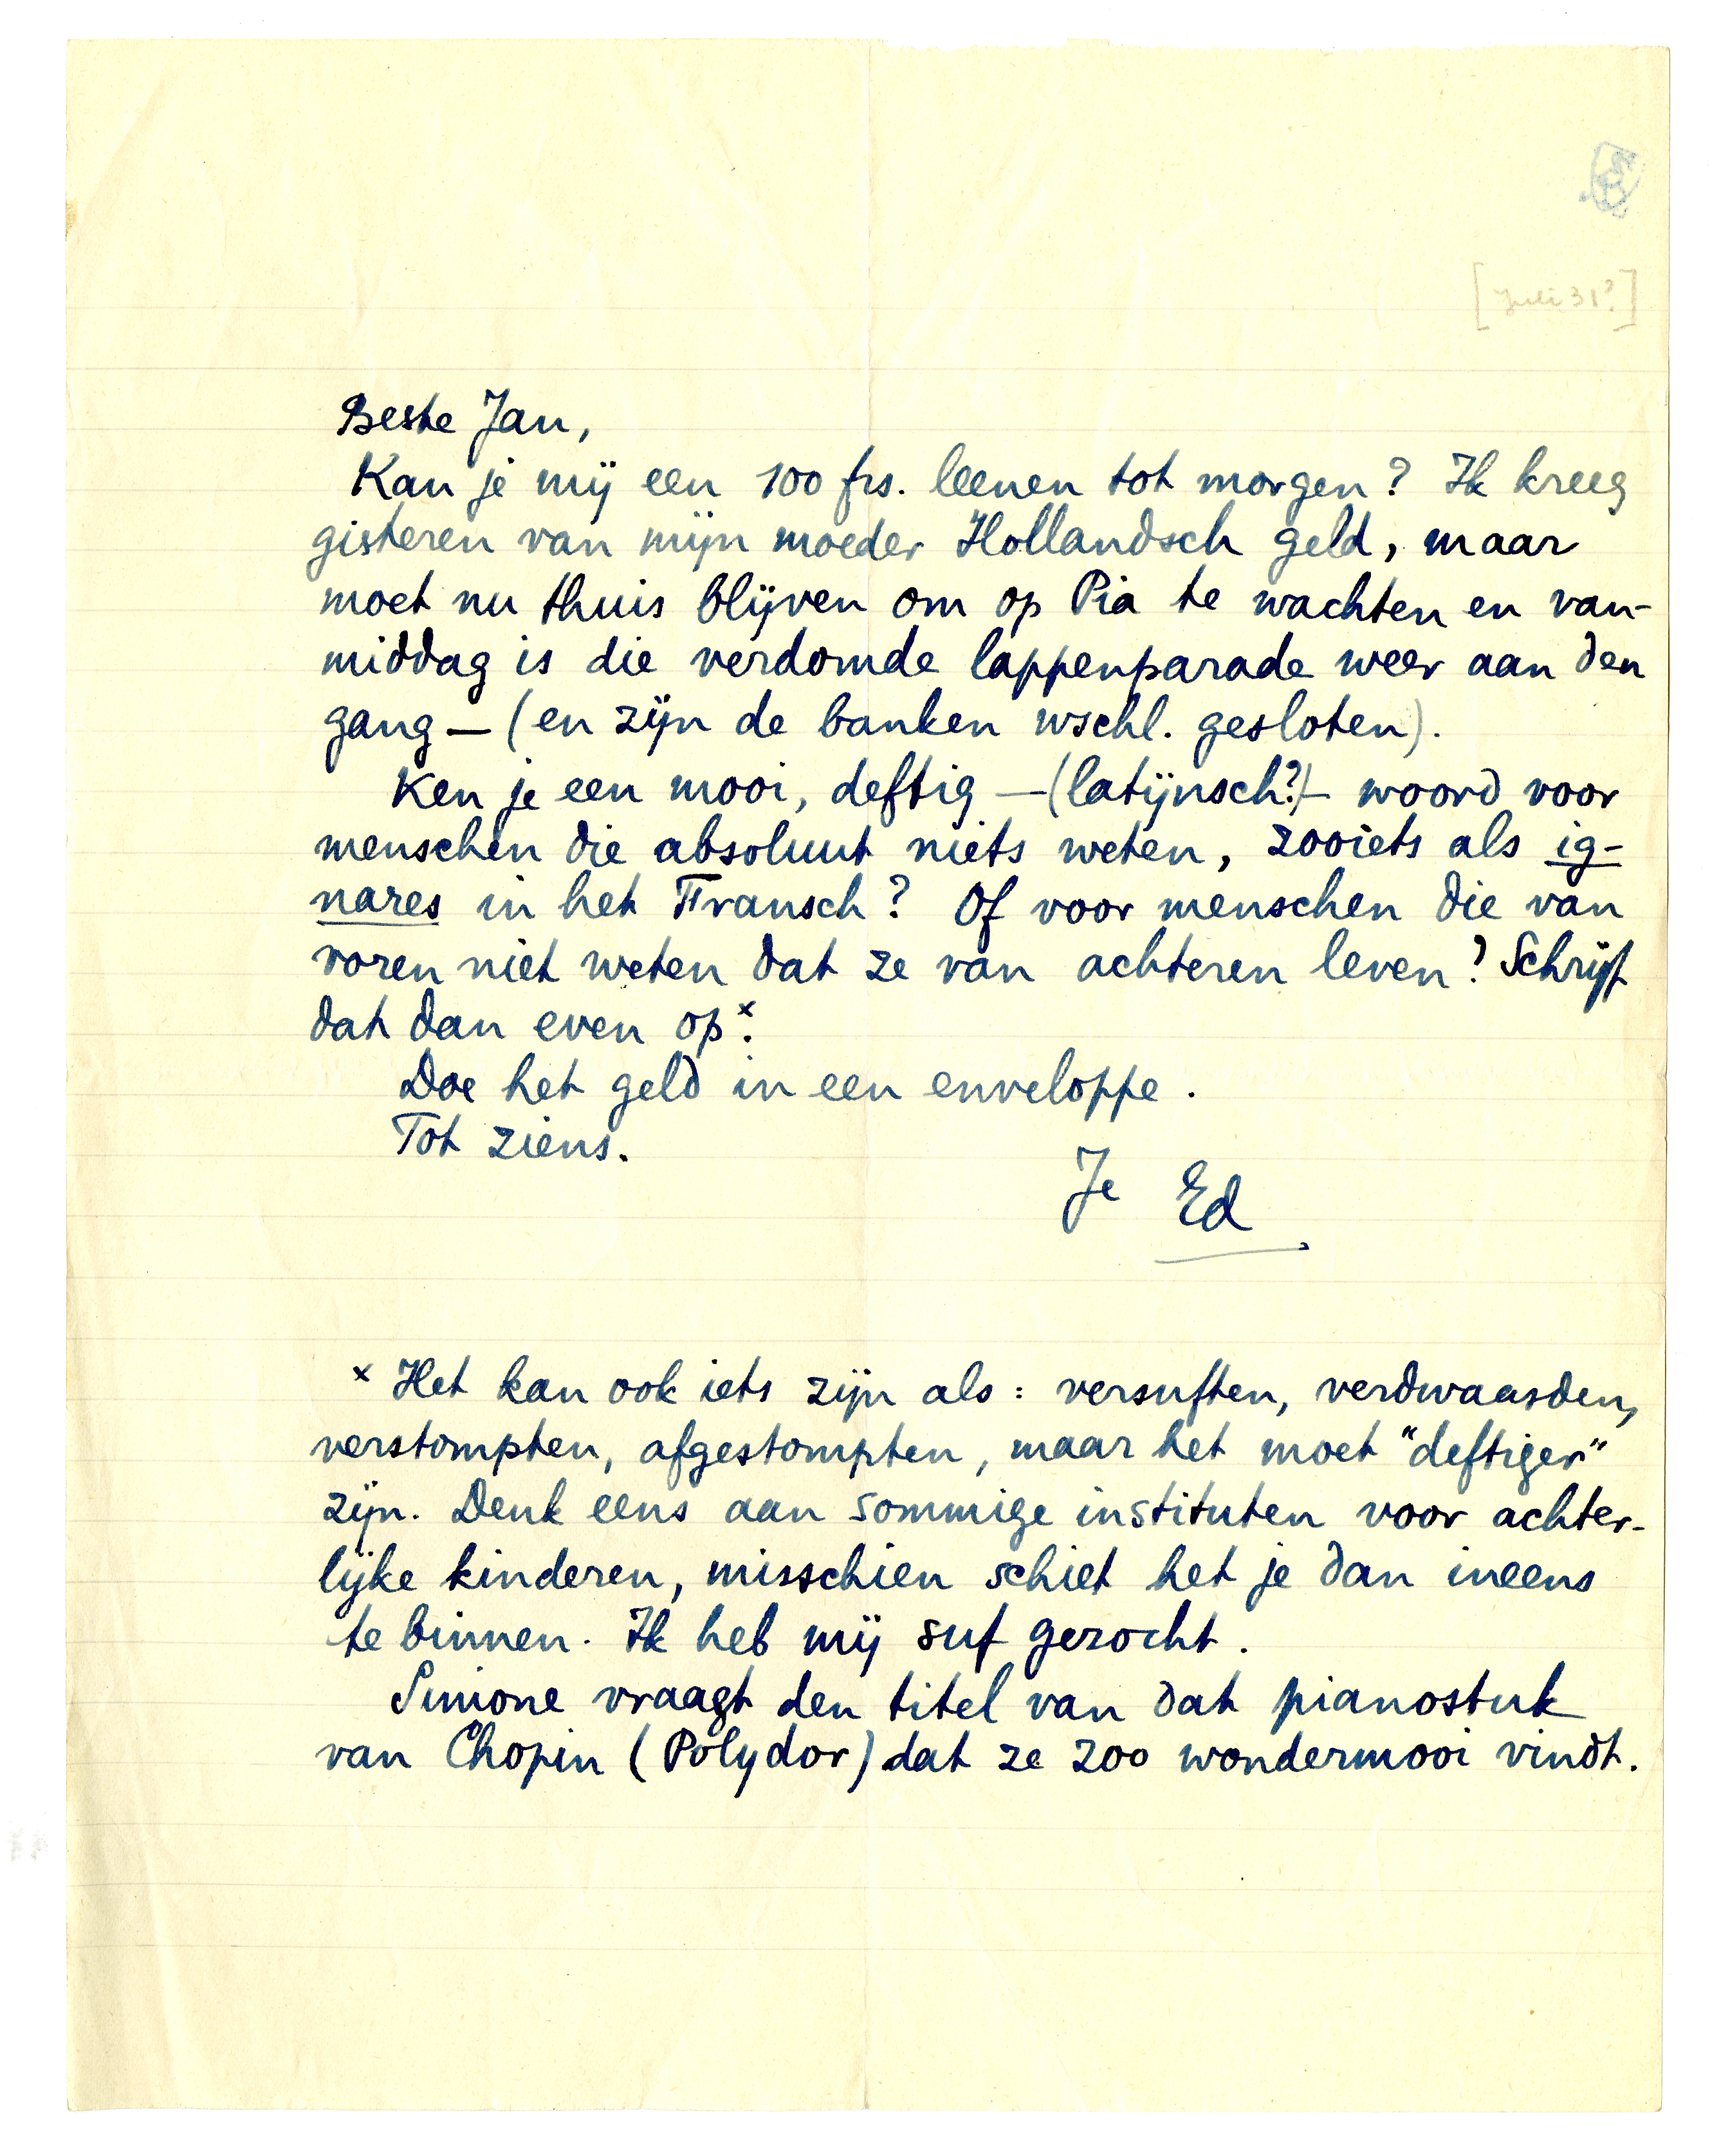 [Juli 31?]
Beste Jan,
Kan je mij een 100 frs. leenen tot morgen? Ik kreeg
gisteren van mijn moeder Hollandsch geld, maar
moet nu thuis blijven om op Pia te wachten en van-
middag is die verdomde lappenparade weer aan den
gang — (en zijn de banken wschl. gesloten).
Ken je een mooi, deftig — (latijnsch?) — woord voor
menschen die absoluut niets weten, zooiets als ig-
nares in het Fransch? Of voor menschen die van
voren niet weten dat ze van achteren leven? Schrijf
dat dan even op ˣ.
Doe het geld in een enveloppe.
Tot ziens.
Je Ed
ˣ Het kan ook iets zijn als: versuften, verdwaasden,
verstompten, afgestompten, maar het moet "deftiger"
zijn. Denk eens aan sommige instituten voor achter-
lijke kinderen, misschien schiet het je dan ineens
te binnen. Ik heb mij suf gezocht.
Simone vraagt den titel van dat pianostuk
van Chopin (Polydor) dat ze zoo wondermooi vindt.